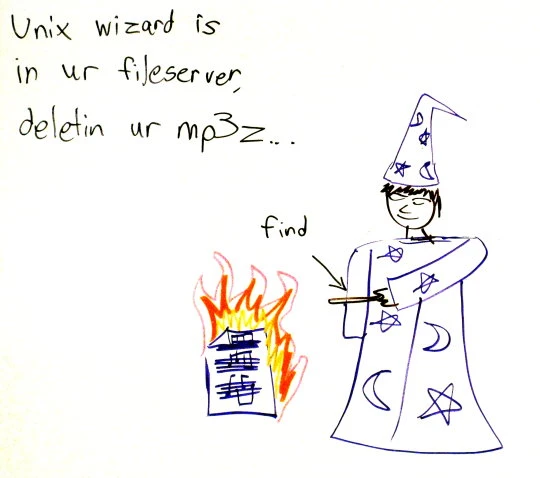 Unix wizard is
in ur fileserver,
deletin ur mp3z...
find